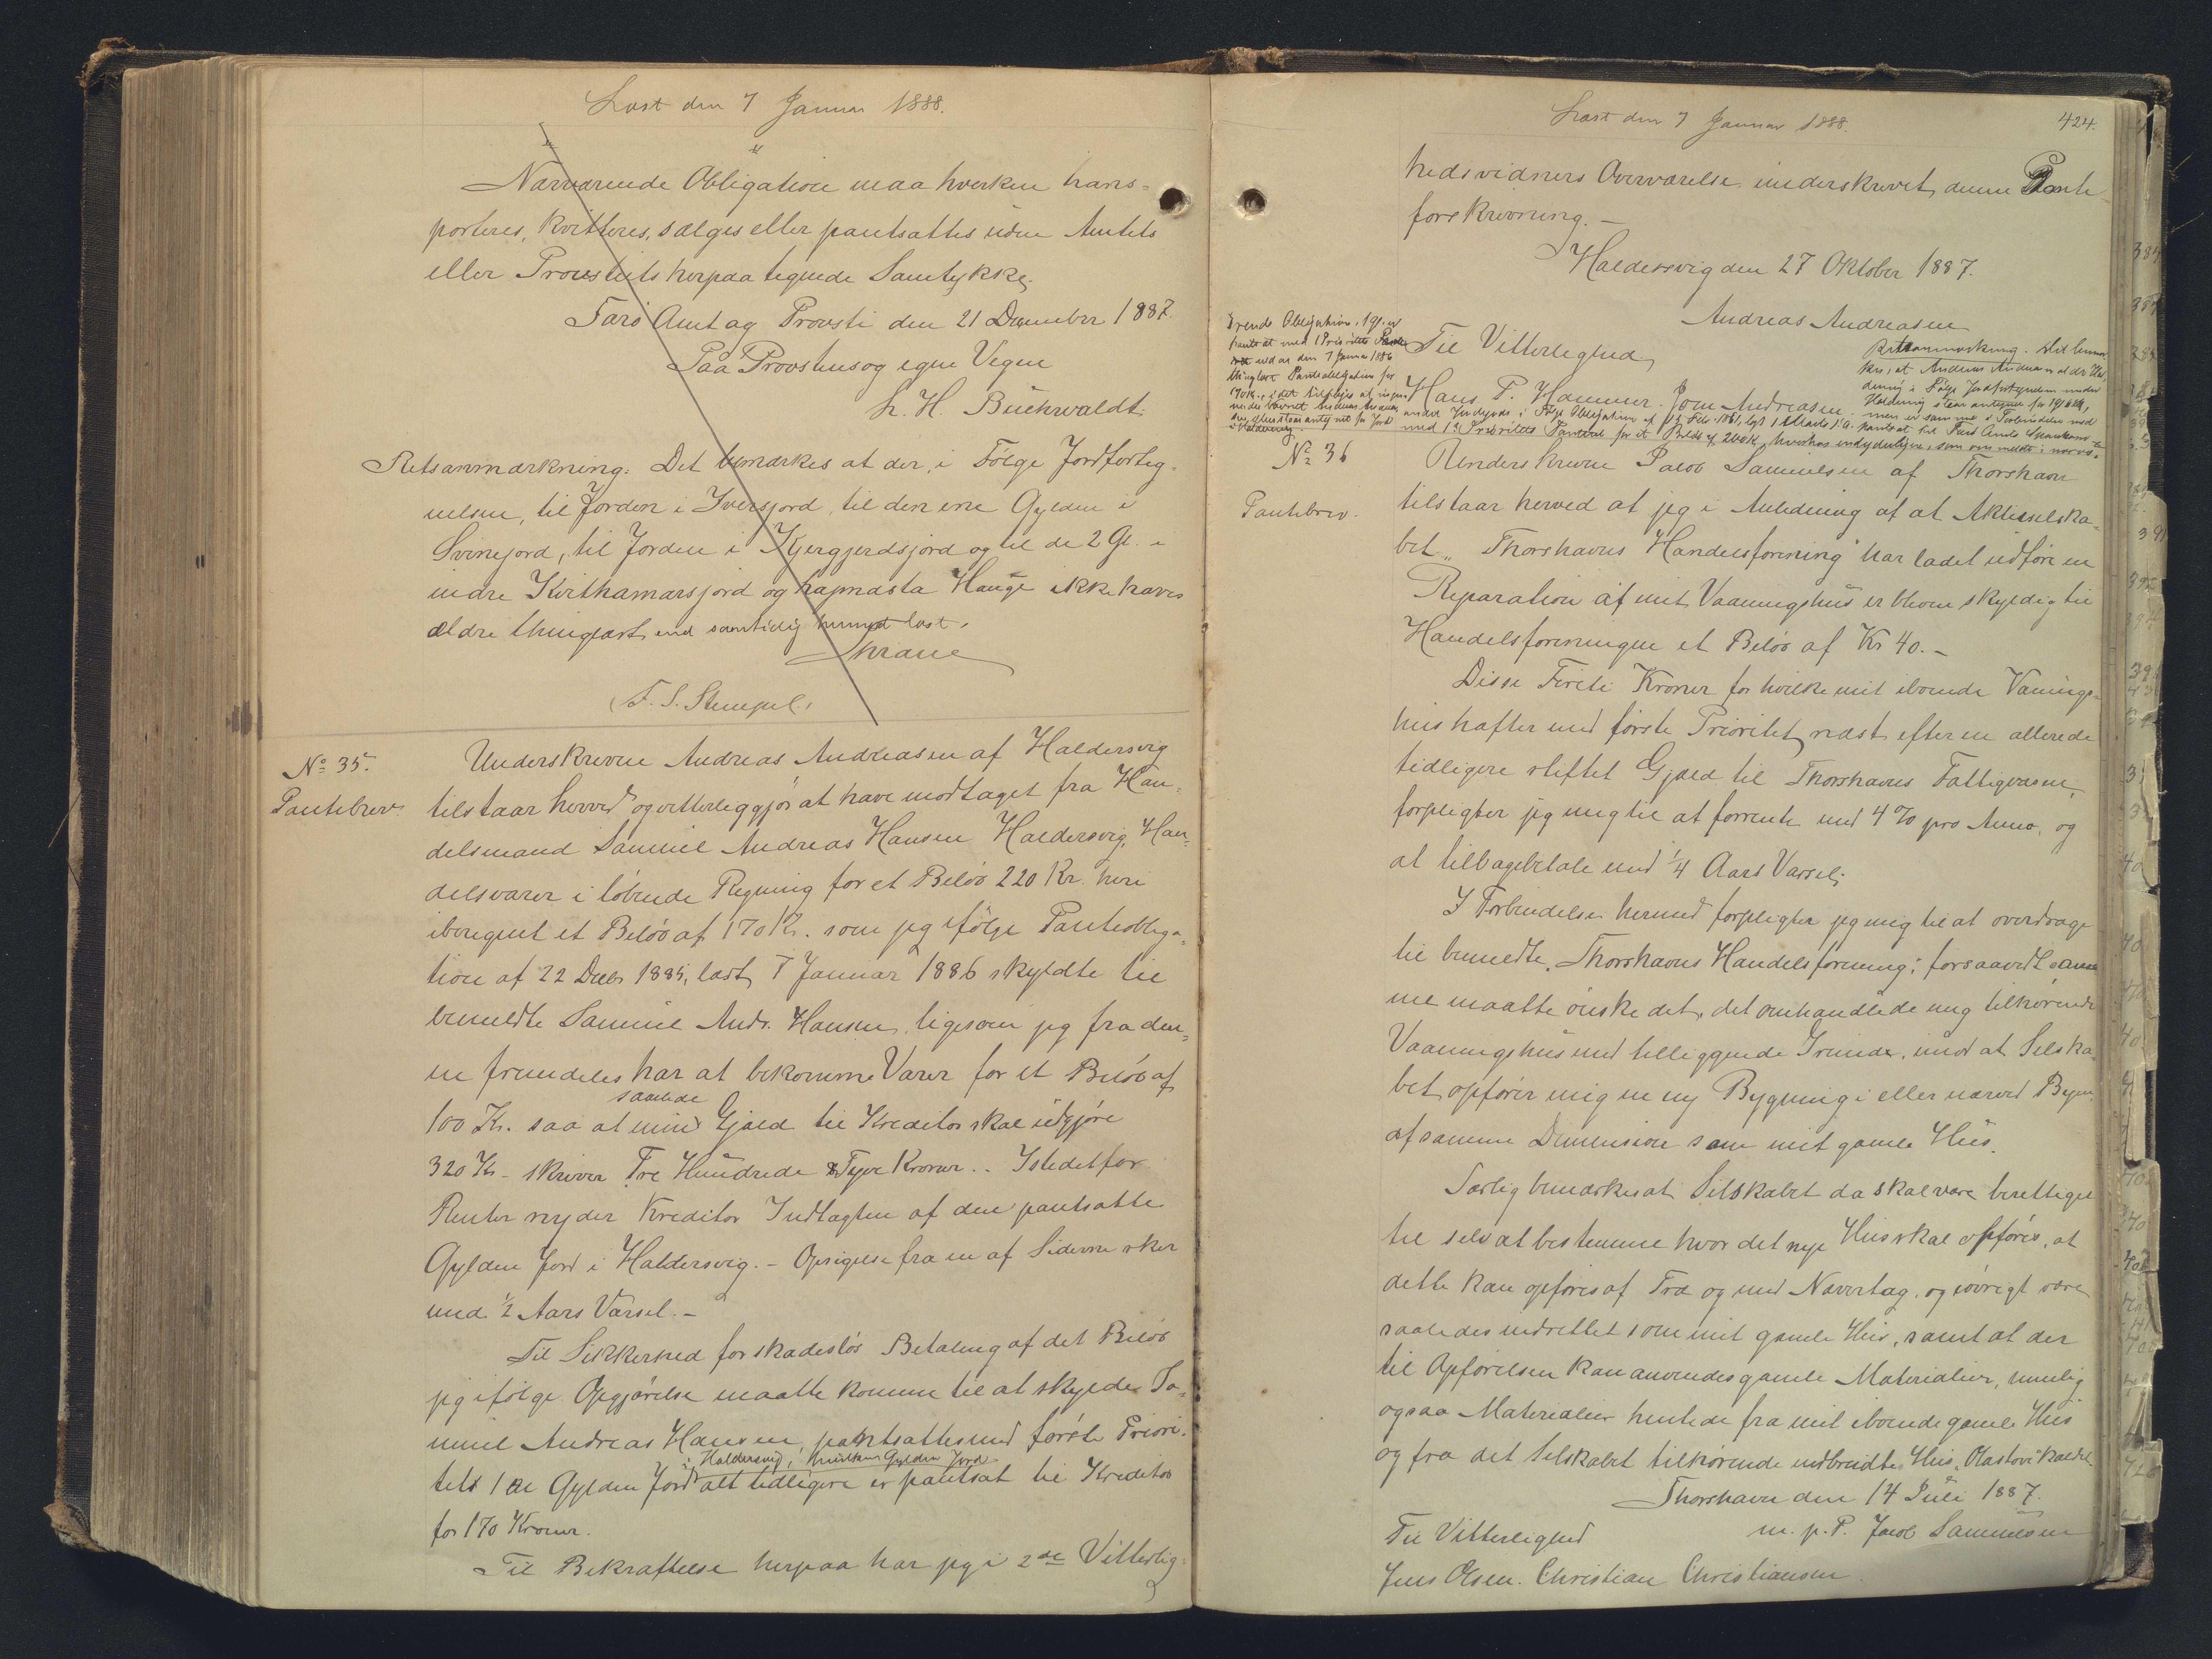 Læst den 7 Januar 1888.
Nærværende Obligation maa hverken trans=
porteres, kvitteres, sælges eller pantsættes uden Amtets
eller Provstiets herpaa tegnede Samtykke.
Færø Amt og Provsti den 21 December 1887.
Paa Provstens og egne Vegne
L. H. Buchwaldt.
Retsanmærkning: Det bemærkes at der, i Følge Jordforteg=
nelsen, til Jorden i Iversjord, til den ene Gylden i
Svinejord, til Jorden i Kjergjerdsjord og til de 2 Gl. i
indre Kvithamarsjord og Hauge ikke haves
ældre thinglæst end samtidig hermed læst.
Thrane
(F. S. Stempel.)
No 35.
Pantebrev.
Underskrevne Andreas Andreasen af Haldersvig
tilstaar herved og vitterleggjør at have modtaget fra Han=
delsmand Samuel Andreas Hansen Haldersvig, Han=
delsvarer i løbende Regning for et Beløb 220 Kr. heri
iberegnet et Beløb af 170 Kr. som jeg ifølge Pantobliga=
tion af 22 Decbr 1885, læst 7 Januar 1886 skyldte til
bemeldte Samuel Andr. Hansen, ligesom jeg fra den=
ne fremdeles har at bekomme Varer for et Beløb af
100 Kr. saa at min samlede Gjæld til Kreditor skal udgjøre
320 Kr - skriver Tre Hundrede & Tyve Kroner.. Istedetfor
Renter nyder Kreditor Indtægten af den pantsatte
Gylden Jord i Haldersvig. - Opsigelse fra en af Siderne sker
med ½ Aars Varsel. -
Til Sikkerhed for skadesløs Betaling af det Beløb
jeg ifølge Opgjørelse maatte komme til at skylde Sa=
muel Andreas Hansen, pantsættes med første Priori=
tets 1 en Gylden Jord i Haldersvig, hvilken Gylden Jord alt tidligere er pantsat til Kreditor
for 170 Kroner.
Til Bekræftelse herpaa har jeg i 2de Vitterlig=
Læst den 7 Januar 1888.
424.
hedsvidners Overværelse underskrevet denne Pante
forskrivning. -
Haldersvig den 27 Oktober 1887.
Andreas Andreasen
Til Vitterlighed
Hans P. Hammer. Jom Andreasen.
Retsanmærkning. Det bemær-
kes, at Andreas Andreasen
i Følge Jordfortegnelsen under
Haldersvig staar antegnet for
men er sammen i Forbindelse med
andet Jordgods i Følge Obligation af
med 1ste Prioritets Panteret for et Beløb af 200 Kr,
ørende Obligation, 1 Gl. er
pantsat med 1 Prioritets
ved den 7 Januar 1886
thinglæst Pantobligation for
170 Kr., idet tilføjes at
No 36
Pantebrev.
Underskrevne Jacob Samuelsen af Thorshavn
tilstaar herved at jeg i Anledning af at Aktieselska=
bet „Thorshavns Handelsforening" har ladet udføre en
Reparation af mit Vaaningshus er bleven skyldig til
Handelsforeningen et Beløb af Kr 40. -
Disse Fireti Kroner for hvilke mit iboende Vaanings=
hus hæfter med første Prioritet næst efter en allerede
tidligere stiftet Gjæld til Thorshavns Fattigvæsen,
forpligter jeg mig til at forrente med 4 % pro Anno, og
at tilbagebetale med ¼ Aars Varsel.
I Forbindelse hermed forpligter jeg mig til at overdrage
til bemeldte „Thorshavns Handelsforening", forsaavidt sam
me maatte ønske det, det omhandlede mig tilhørende
Vaaningshus med tilliggende Grunde, imod at Selska=
bet opfører mig en ny Bygning i eller nærved Byen
af samme Dimension som mit gamle Hus.
Særlig bemærkes at Selskabet da skal være berettiget
til selv at bestemme hvor det nye Hus skal opføres, at
dette kan opføres af Træ og med Nævertag, og iøvrigt være
saaledes indrettet som mit gamle Hus, samt at der
til Opførelsen kan anvendes gamle Materialier, nemlig
ogsaa Materialier hentede fra mit iboende gamle Hus
og fra det Selskabet tilhørende Hus, „Olastova" kaldet.
Thorshavn den 14 Juli 1887.
m. p. P. Jacob Samuelsen
Til Vitterlighed
Jens Olsen. Christian Christiansen.